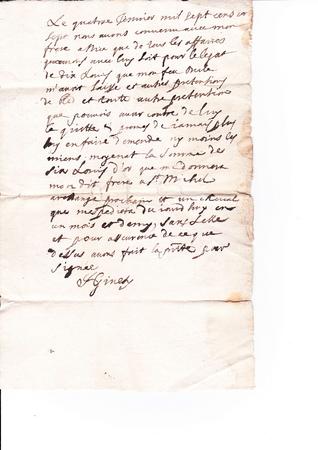 Le quatre fevrier mil sept cens
sept nous avons convenu avec mon
frere que de tous les affaires
que nous avec luy soit pour le legat
de dix Louys que mon feu Oncle
m'avoit laisse et autres pretentions
de et toute autre pretentions
que pouvois avoir contre de luy
le quitte et promes de jamais plus
luy en faire demende ny moins les
miens, moyenat la somme de
six Louys d'or que me donnera
mon dit frere a St Michel
archange prochain et un cheval
que me du jourd'huy en
un mois et demy, sans
et pour assurence de ce que
dessus avons fait la pntte que
signee